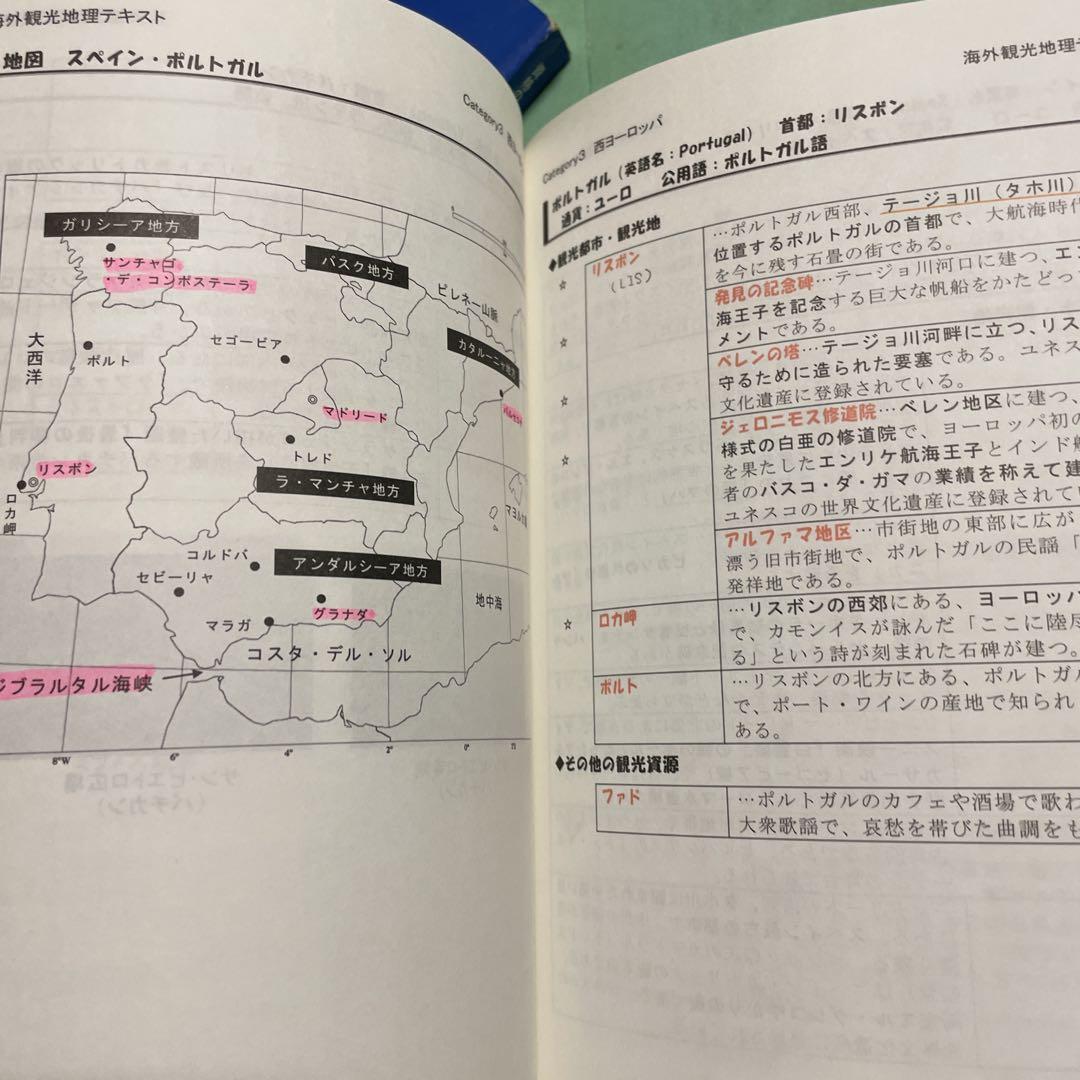 海外観光地理テキスト
地図 スペイン・ポルトガル
Category3 西
ガリシーア地方
サンチャゴ
・デ・コンポステーラ
バスク地方
ピレネー山脈
大西洋
ポルト
セゴービア
カタルーニャ地方
マドリード
トレド
リスボン
ロカ岬
ラ・マンチャ地方
マヨルカ
コルドバ
セビーリャ
アンダルシーア地方
グラナダ
地中海
マラガ
コスタ・デル・ソル
ジブラルタル海峡
8°W 6° 4° 2° 0°
海外観光地理テ
Category3 西ヨーロッパ
ポルトガル(英語名:Portugal) 首都:リスボン
通貨:ユーロ 公用語:ポルトガル語
◆観光都市・観光地
☆ リスボン
(LIS)
…ポルトガル西部、テージョ川(タホ川)
位置するポルトガルの首都で、大航海時代
を今に残す石畳の街である。
☆ 発見の記念碑…テージョ川河口に建つ、エン
海王子を記念する巨大な帆船をかたどっ
メントである。
☆ ベレンの塔…テージョ川河畔に立つ、リス
守るために造られた要塞である。ユネス
文化遺産に登録されている。
☆ ジェロニモス修道院…ベレン地区に建つ、
様式の白亜の修道院で、ヨーロッパ初の
を果たしたエンリケ航海王子とインド航
者のバスコ・ダ・ガマの業績を称えて建
ユネスコの世界文化遺産に登録されて
アルファマ地区…市街地の東部に広が
漂う旧市街地で、ポルトガルの民謡「
発祥地である。
☆ ロカ岬
…リスボンの西郊にある、ヨーロッパ
で、カモンイスが詠んだ「ここに陸尽
る」という詩が刻まれた石碑が建つ。
ポルト
…リスボンの北方にある、ポルトガル
で、ポート・ワインの産地で知られ
ある。
◆その他の観光資源
ファド
…ポルトガルのカフェや酒場で歌わ
大衆歌謡で、哀愁を帯びた曲調をも